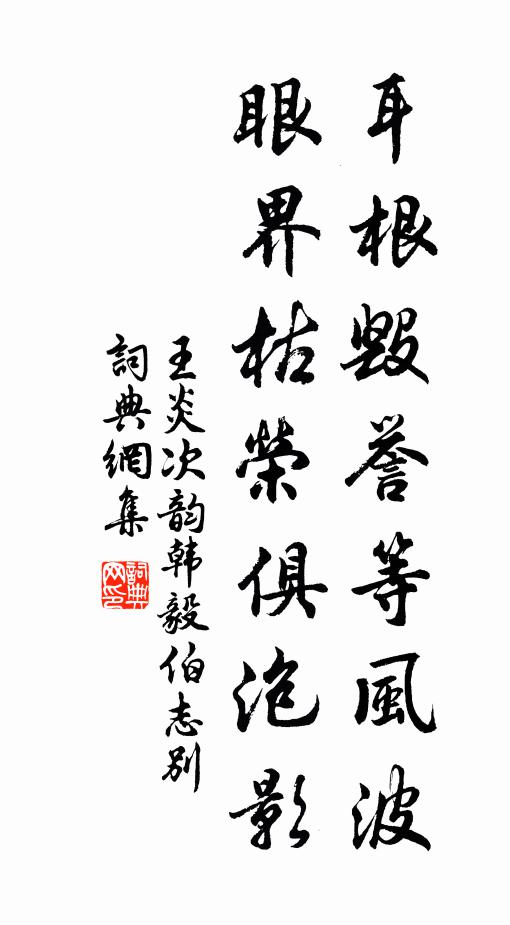 耳根毀誉等風波
眼界枯榮俱泡影
王炎次韵韩毅伯志别
詞典網集
詞典网印